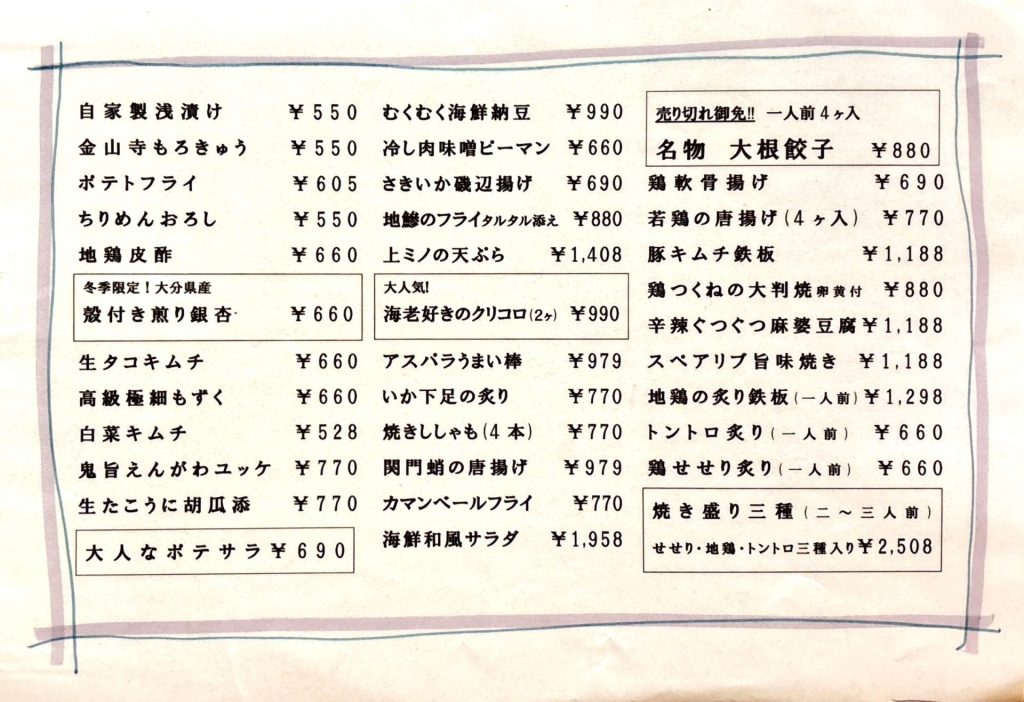 自家製浅漬け ¥550
金山寺もろきゅう ¥550
ポテトフライ ¥605
ちりめんおろし ¥550
地鶏皮酢 ¥660
冬季限定！大分県産
殻付き煎り銀杏 ¥660
生タコキムチ ¥660
高級極細もずく ¥660
白菜キムチ ¥528
鬼旨えんがわユッケ ¥770
生たこうに胡瓜添 ¥770
大人なポテサラ ¥690
むくむく海鮮納豆 ¥990
冷し肉味噌ピーマン ¥660
さきいか磯辺揚げ ¥690
地鯵のフライタルタル添え ¥880
上ミノの天ぷら ¥1,408
大人気!
海老好きのクリコロ(2ヶ) ¥990
アスパラうまい棒 ¥979
いか下足の炙り ¥770
焼きししゃも(4本) ¥770
関門蛸の唐揚げ ¥979
カマンベールフライ ¥770
海鮮和風サラダ ¥1,958
売り切れ御免!! 一人前4ヶ入
名物 大根餃子 ¥880
鶏軟骨揚げ ¥690
若鶏の唐揚げ(4ヶ入) ¥770
豚キムチ鉄板 ¥1,188
鶏つくねの大判焼卵黄付 ¥880
辛辣ぐつぐつ麻婆豆腐 ¥1,188
スペアリブ旨味焼き ¥1,188
地鶏の炙り鉄板(一人前) ¥1,298
トントロ炙り(一人前) ¥660
鶏せせり炙り(一人前) ¥660
焼き盛り三種(二～三人前)
せせり・地鶏・トントロ三種入り ¥2,508